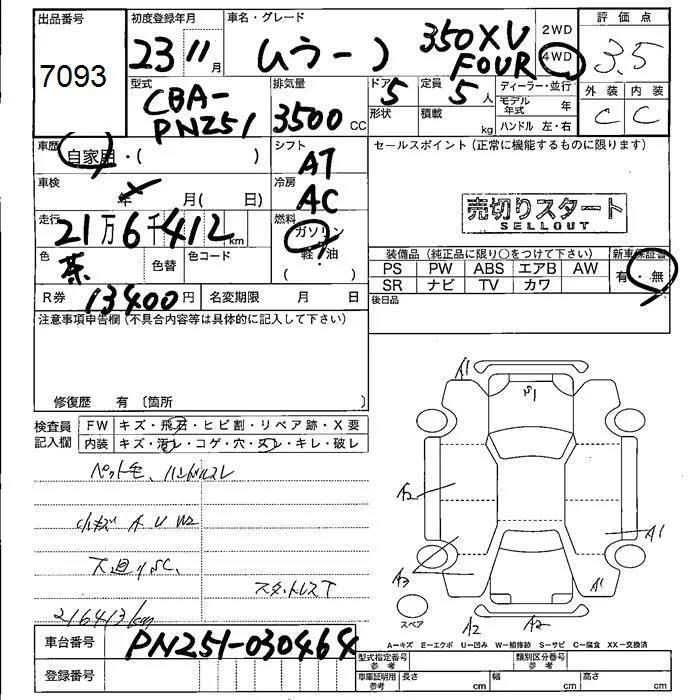 出品番号 初度登録年月 車名・グレード 2WD 評価点
7093 23 11月 ムラーノ 350XV FOUR 4WD 3.5
型式 排気量 ドア 定員 ディーラー・並行 外装 内装
CBA-PNZ51 3500CC 5 5人 モデル年式 年 C C
形状 積載 kg ハンドル 左・右
車歴 自家用・( ) シフト AT セールスポイント(正常に機能するものに限ります)
車検 年 月( 日) 冷房 AC
売切りスタート
SELLOUT
走行 21万6千412km 燃料 ガソリン 軽油
色 茶 色替 色コード
装備品(純正品に限り○をつけて下さい) 新車保証書
PS PW ABS エアB AW 有・無
SR ナビ TV カワ
R券 13400円 名変期限 月 日 後日品
注意事項申告欄(不具合内容等は具体的に記入して下さい)
修復歴 有〔箇所 〕
検査員記入欄 FW キズ・飛石・ヒビ割・リペア跡・X要
内装 キズ・汚レ・コゲ・穴・スレ・キレ・破レ
ペット毛、ハンドルスレ
小キズ A U W2
下廻りSC、
スタットレスT
216413km
A1 S1 A2 A1 A3 A1 A2 A2
スペア
A=キズ E=エクボ U=凹み W=補修跡 S=サビ C=腐食 XX=交換済
車台番号 PNZ51-030464
登録番号
型式指定番号 参考 類別区分番号 参考
車庫証明用 参考 長さ cm 幅 cm 高さ cm